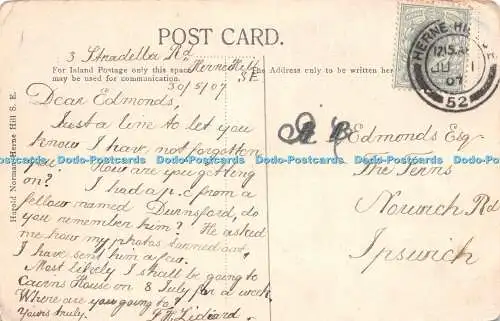 POST CARD.
3 Stradella Rd
Herne Hill
S.E
For Inland Postage only this space
may be used for communication.
The Address only to be written here
30/5/07
Dear Edmonds,
Just a line to let you
know I have not forgotten
you. How are you getting
on? I had a p.c from a
fellow named Durnsford, do
you remember him? He asked
me how my photos turned out,
I have sent him a few.
Most likely I shall be going to
Cairns House on 8 July for a week
Where are you going to?
Yours truly. F. W. Lediard
Edmonds Esq
The Ferns
Norwich Rd
Ipswich
HERNE HILL
12.15 AM
JU 1
07
52
Harold Norman, Herne Hill S.E.
Dodo-Postcards Dodo-Postcards Dodo-Postcards Dodo-Postcards Dodo-Postcards